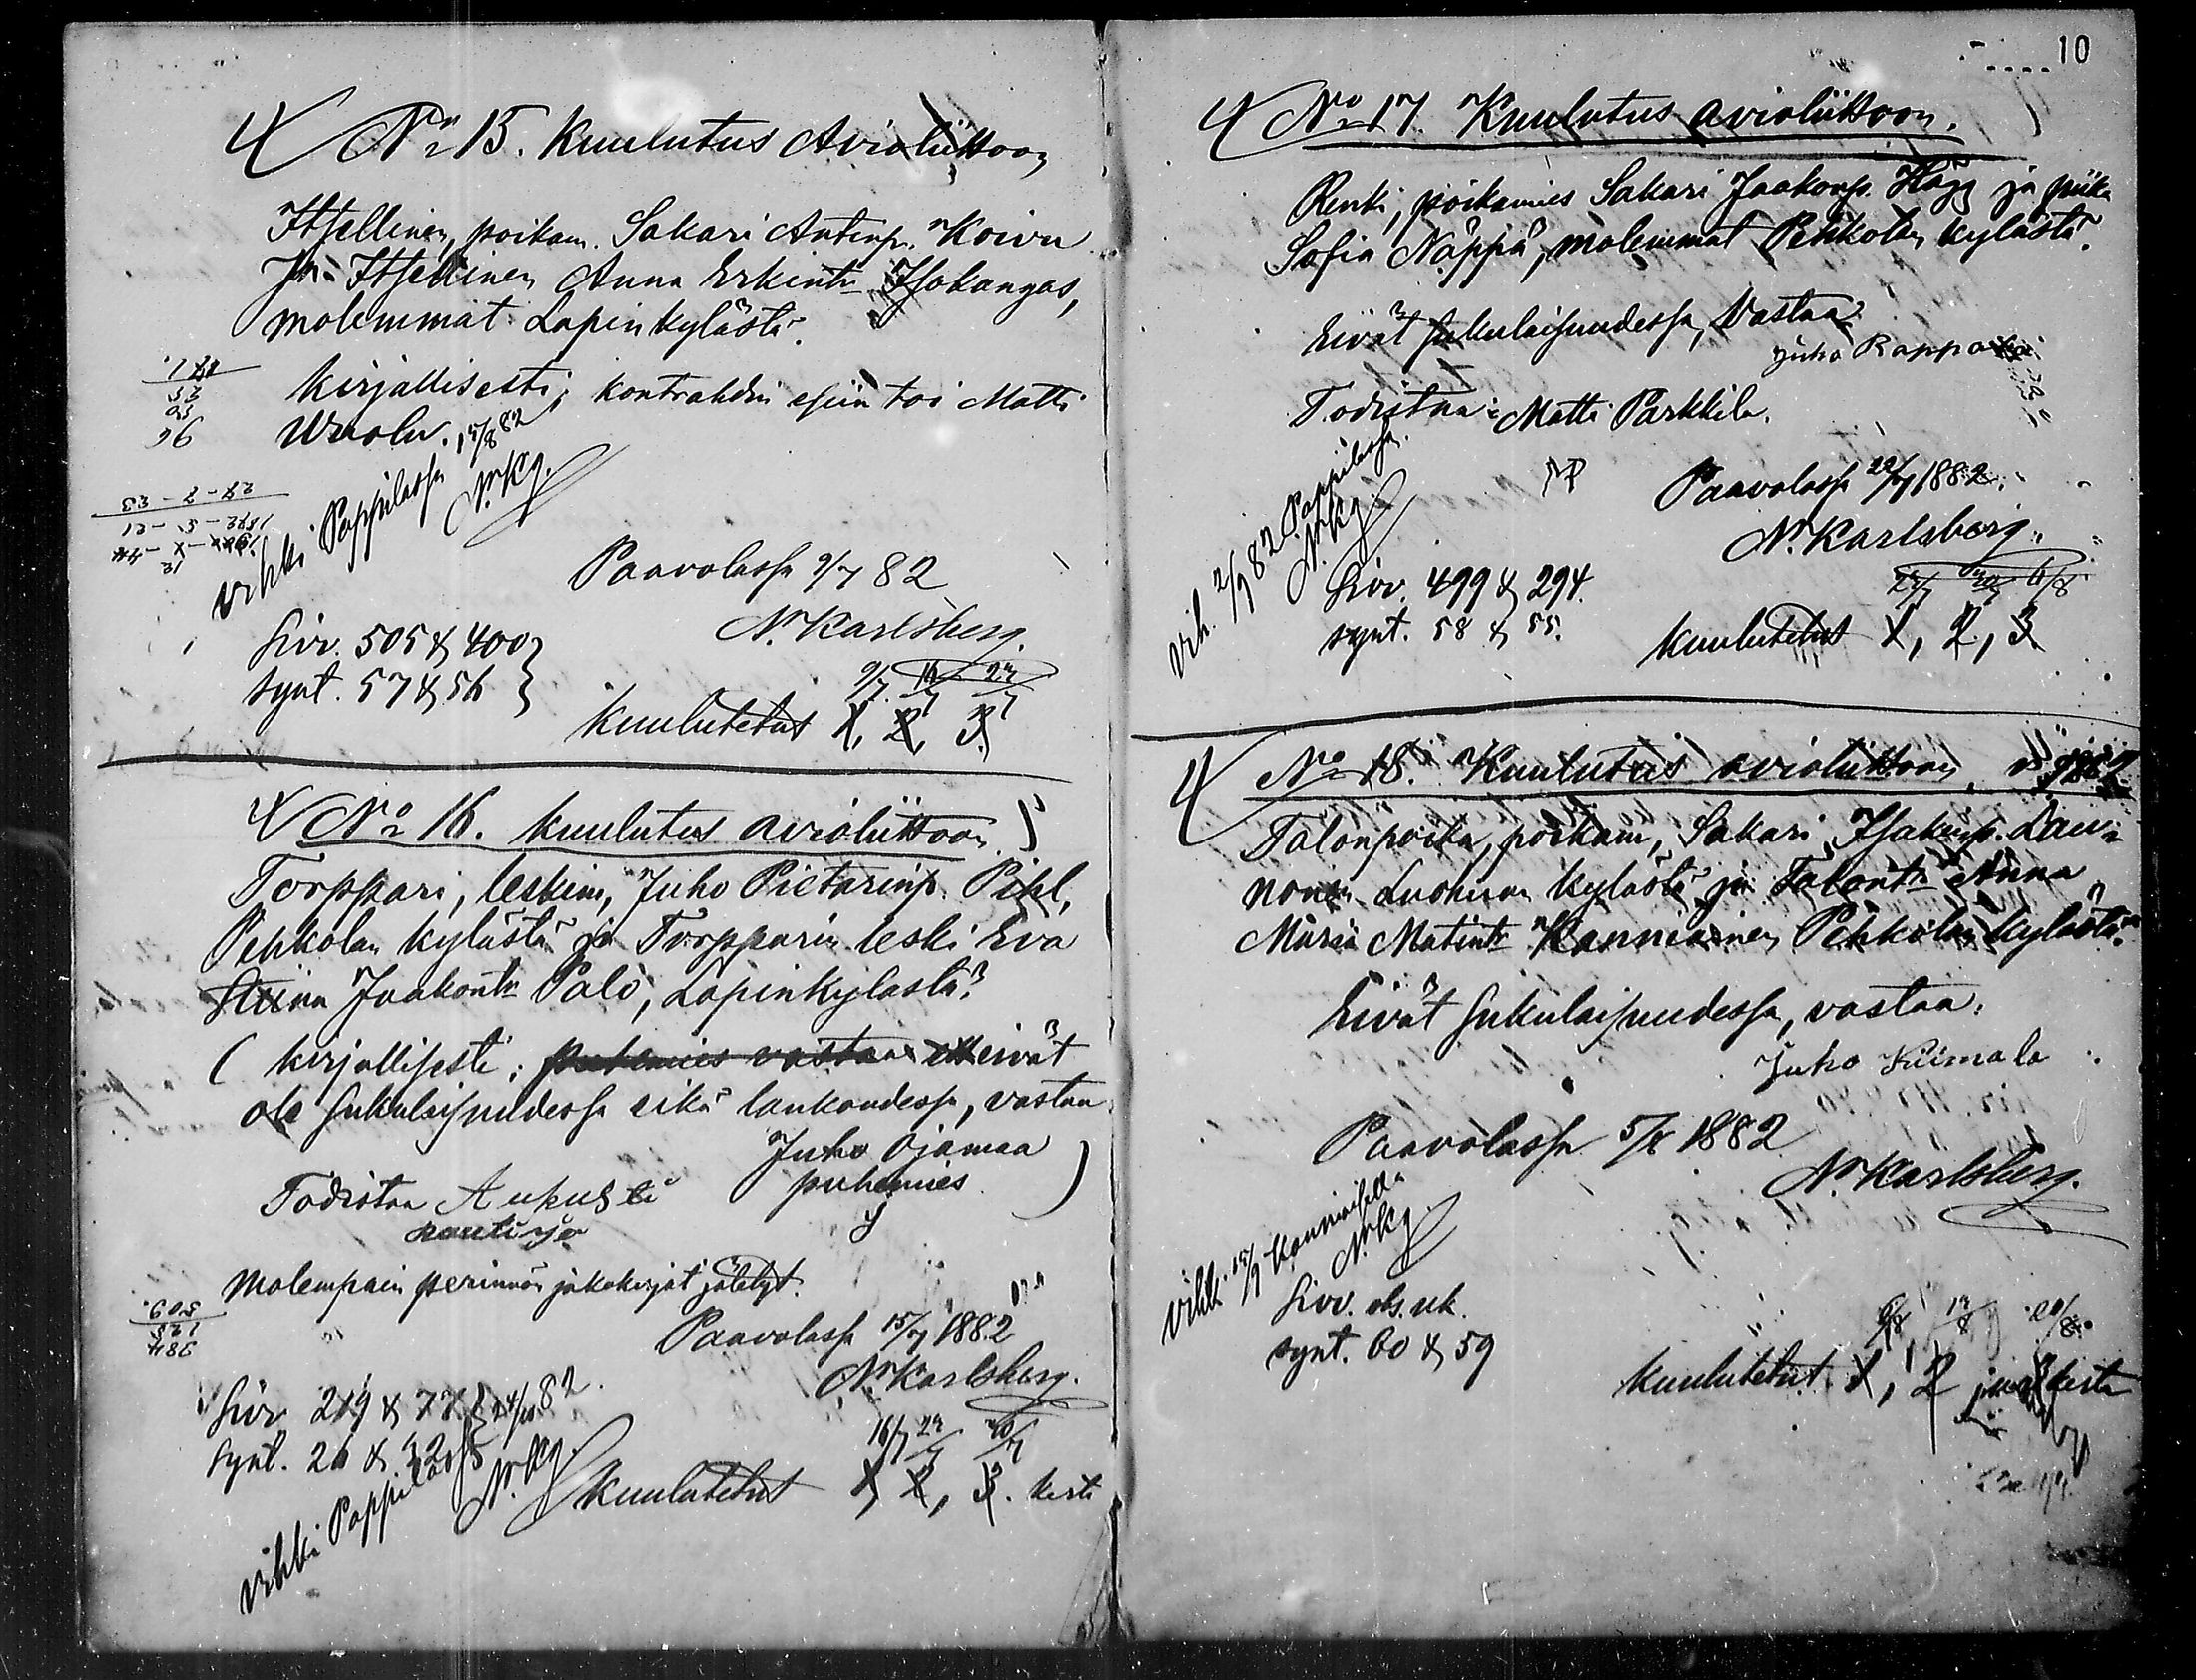 10
No 15. Kuulutus Avioliittoon
Itsellinen, poikam. Sakari Antinp. Koivu
ja Itsellinen Anna Erkintr Isokangas,
molemmat Lapinkylästä.
Kirjallisesti; kontrahdin esiin toi Matti
Uusolu.
Vihki Pappilassa 15/8 82
N. Kg.
Paavolassa 9/7 82
N. Karlsberg.
Siv. 505 & 400
synt. 57 & 56
9/7 16/7 23/7
Kuulutetut 1, 2, 3.
No 16. Kuulutus avioliittoon
Torppari, leskim, Juho Pietarinp. Pihl,
Pehkolan kylästä ja Torpparin leski Eva
Stiina Jaakontr Palo, Lapinkylästä.
( kirjallisesti: puhemies vastaa ett eivät
ole sukulaisuudessa eikä lankoudessa, vastaa
Juho Ojamaa
puhemies )
Todistaa Aukusti
kantija
Molempain perinnön jakokirjat jätetyt.
Paavolassa 15/7 1882
N. Karlsberg.
Siv. 219 & 77
synt. 26 & 32
Vihki Pappilassa 24/10 82.
N. Kg.
16/7 23/7 30/7
Kuulutetut 1, 2, 3. kerta
No 17 Kuulutus avioliittoon.
Renki, poikamies Sakari Jaakonp. Hägg ja piika
Sofia Näppä, molemmat Pehkolan kylästä.
Eivät sukulaisuudessa, vastaa
Juho Rappa
Todistaa: Matti Parkkila.
Paavolassa 22/7 1882.
N. Karlsberg.
Vih. 2/9 82 Pappilassa.
N. Kg.
Siv. 499 & 294.
synt. 58 & 55.
23/7 30/7 6/8
Kuulutetut 1, 2, 3
No 18. Kuulutus avioliittoon
Talonpoika, poikam, Sakari Isakinp. Lau-
nonen Luohuan kylästä ja Talontr Anna
Maria Matintr Kanniainen Pehkolan kylästä.
Eivät sukulaisuudessa, vastaa:
Juho Kiimala
Paavolassa 5/8 1882
N. Karlsberg.
Vihk. 15/9 Kanniaisella
N. Kg
Siv. ob. uk.
synt. 60 & 59
6/8 13/8 20/8
Kuulutetut 1, 2 ja 3 kerta